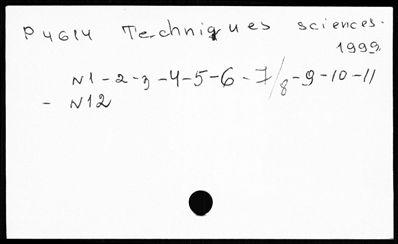 P4614 Techniques sciences.
1999.
N1-2-3-4-5-6-7/8-9-10-11
- N12